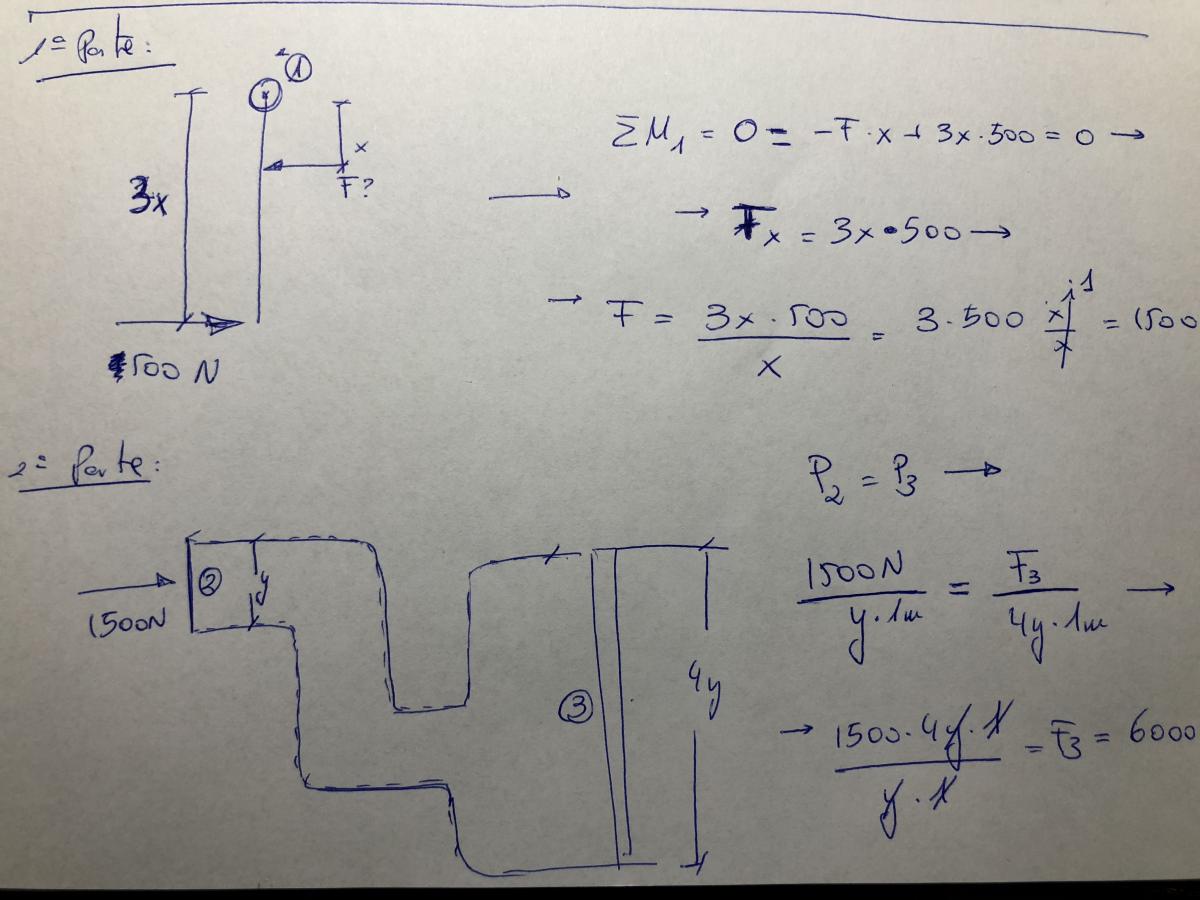 1ª Parte:
①
3x
x
F?
500 N
ΣM₁ = 0 = -F·x + 3x·500 = 0 →
→ Fx = 3x·500 →
→ F = 3x·500 / x = 3·500 x/x 1 = 1500
2ª Parte:
P₂ = P₃ →
1500N
②
y
③
4y
1500N / y·1m = F₃ / 4y·1m →
→ 1500·4y·1 / y·1 = F₃ = 6000